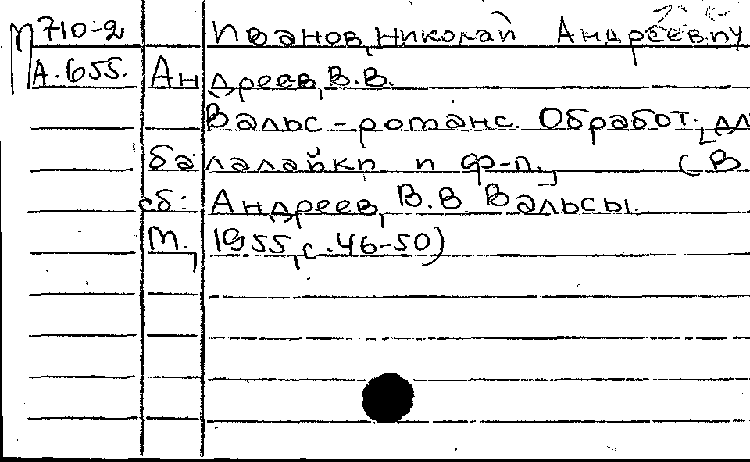 П710-2 Иванов, Николай Андреевич
А.655. Андреев, В.В.
Вальс-романс. Обработ. дл
балалайки и ф-п., (В
сб: Андреев, В.В Вальсы.
М., 1955, с.46-50)